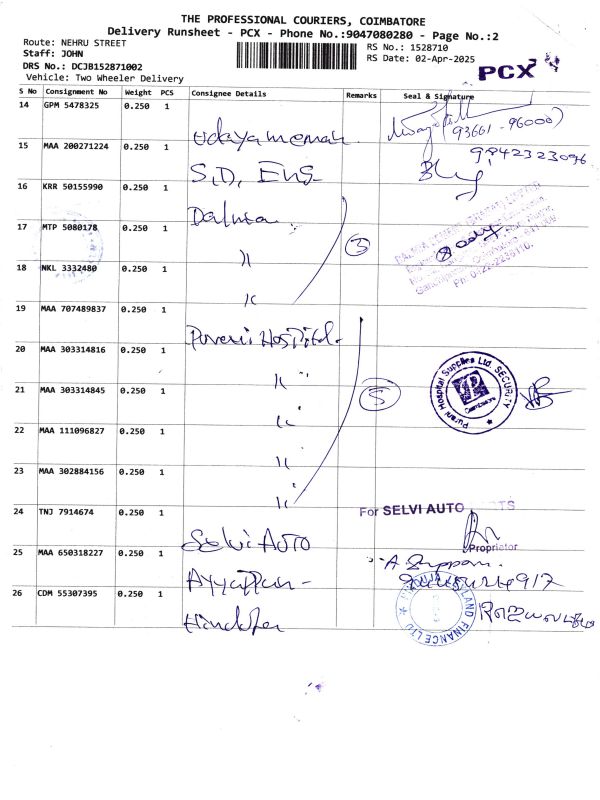 THE PROFESSIONAL COURIERS, COIMBATORE
Delivery Runsheet - PCX - Phone No.:9047080280 - Page No.:2
Route: NEHRU STREET
Staff: JOHN
DRS No.: DCJB152871002
Vehicle: Two Wheeler Delivery
RS No.: 1528710
RS Date: 02-Apr-2025
PCX
S No Consignment No Weight PCS Consignee Details Remarks Seal & Signature
14 GPM 5478325 0.250 1 Udayamemah
(93661-96000)
15 MAA 200271224 0.250 1 S.D. Eng.
9842323096
16 KRR 50155990 0.250 1 Dalmia
17 MTP 5080178 0.250 1 " 3
18 NKL 3332480 0.250 1 "
19 MAA 707489837 0.250 1 Hospital
20 MAA 303314816 0.250 1 "
21 MAA 303314845 0.250 1 " 5
Hospital Supplies Ltd. SECURITY
22 MAA 111096827 0.250 1 "
23 MAA 302884156 0.250 1 "
24 TNJ 7914674 0.250 1 Selvi Auto
For SELVI AUTO
Proprietor
25 MAA 650318227 0.250 1 Ayyappan
26 CDM 55307395 0.250 1 Hinduja
LAND FINANCE LTD